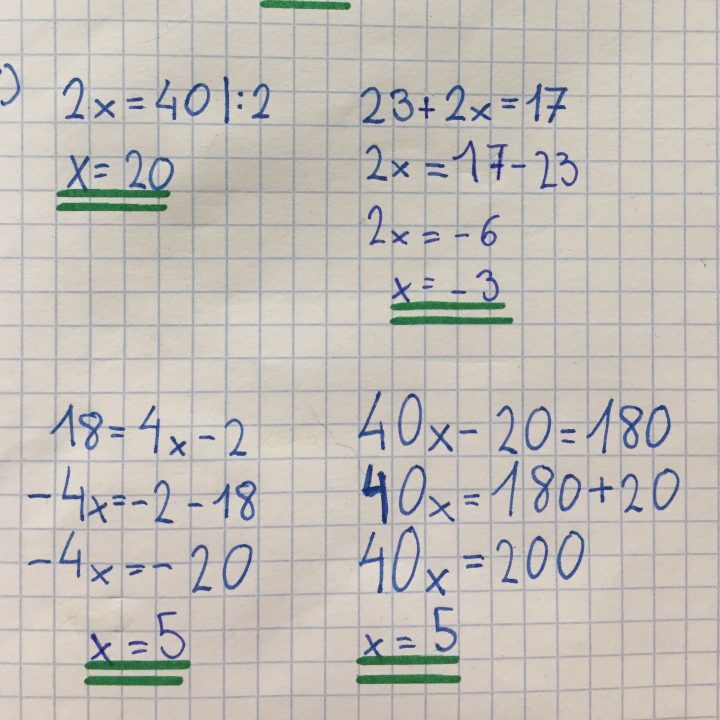 2x=40|:2
x=20
23+2x=17
2x=17-23
2x=-6
x=-3
18=4x-2
-4x=-2-18
-4x=-20
x=5
40x-20=180
40x=180+20
40x=200
x=5